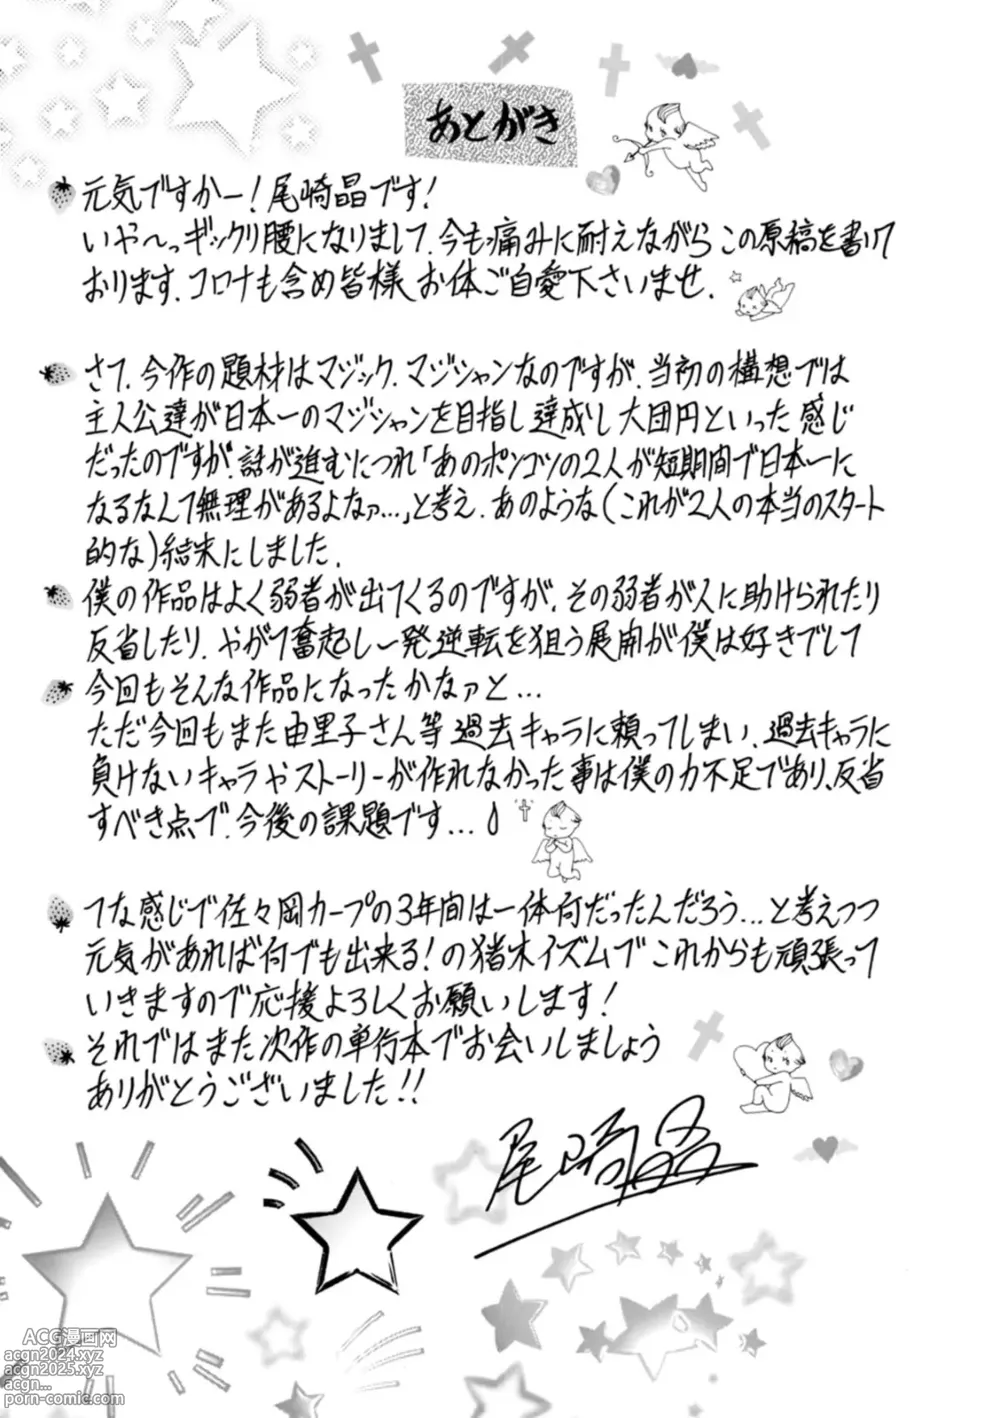 あとがき
元気ですかー!尾崎晶です!
いや〜っギックリ腰になりまして、今も痛みに耐えながらこの原稿を書いて
おります。コロナも含め皆様お体ご自愛下さいませ。
さて、今作の題材はマジック、マジシャンなのですが、当初の構想では
主人公達が日本一のマジシャンを目指し達成し大団円といった感じ
だったのですが、話が進むにつれ「あのポンコツの2人が短期間で日本一に
なるなんて無理があるよなァ…」と考え、あのような(これが2人の本当のスタート
的な)結末にしました。
僕の作品はよく弱者が出てくるのですが、その弱者が人に助けられたり
反省したり、やがて奮起し一発逆転を狙う展開が僕は好きでして
今回もそんな作品になったかなァと…
ただ今回もまた由里子さん等過去キャラに頼ってしまい、過去キャラに
負けないキャラやストーリーが作れなかった事は僕の力不足であり、反省
すべき点で、今後の課題です…
てな感じで佐々岡カープの3年間は一体何だったんだろう…と考えつつ
元気があれば何でも出来る!の猪木イズムでこれからも頑張って
いきますので応援よろしくお願いします!
それではまた次作の単行本でお会いしましょう
ありがとうございました!!
尾崎晶
ACG漫画网
acgn2024.xyz
acgn2025.xyz
acgn...
porn-comic.com